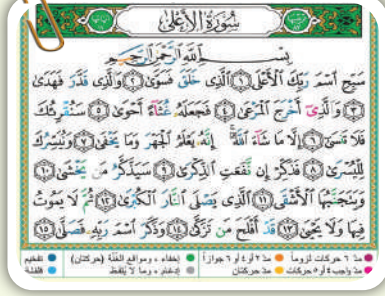 سُورَةُ الأَعْلَى
بِسْمِ اللَّهِ الرَّحْمَٰنِ الرَّحِيمِ
سَبِّحِ اسْمَ رَبِّكَ الْأَعْلَى ١ الَّذِي خَلَقَ فَسَوَّىٰ ٢ وَالَّذِي قَدَّرَ فَهَدَىٰ
٣ وَالَّذِي أَخْرَجَ الْمَرْعَىٰ ٤ فَجَعَلَهُ غُثَاءً أَحْوَىٰ ٥ سَنُقْرِئُكَ
فَلَا تَنسَىٰ ٦ إِلَّا مَا شَاءَ اللَّهُ إِنَّهُ يَعْلَمُ الْجَهْرَ وَمَا يَخْفَىٰ ٧ وَنُيَسِّرُكَ
لِلْيُسْرَىٰ ٨ فَذَكِّرْ إِن نَّفَعَتِ الذِّكْرَىٰ ٩ سَيَذَّكَّرُ مَن يَخْشَىٰ ١٠
وَيَتَجَنَّبُهَا الْأَشْقَى ١١ الَّذِي يَصْلَى النَّارَ الْكُبْرَىٰ ١٢ ثُمَّ لَا يَمُوتُ
فِيهَا وَلَا يَحْيَىٰ ١٣ قَدْ أَفْلَحَ مَن تَزَكَّىٰ ١٤ وَذَكَرَ اسْمَ رَبِّهِ فَصَلَّىٰ ١٥
مدّ ٦ حركات لزوماً مدّ ٢ أو ٤ أو ٦ جوازاً إخفاء، ومواقع الغنّة (حركتان) تفخيم
مدّ واجب ٤ أو ٥ حركات مدّ حركتان إدغام، وما لا يُلفظ قلقلة